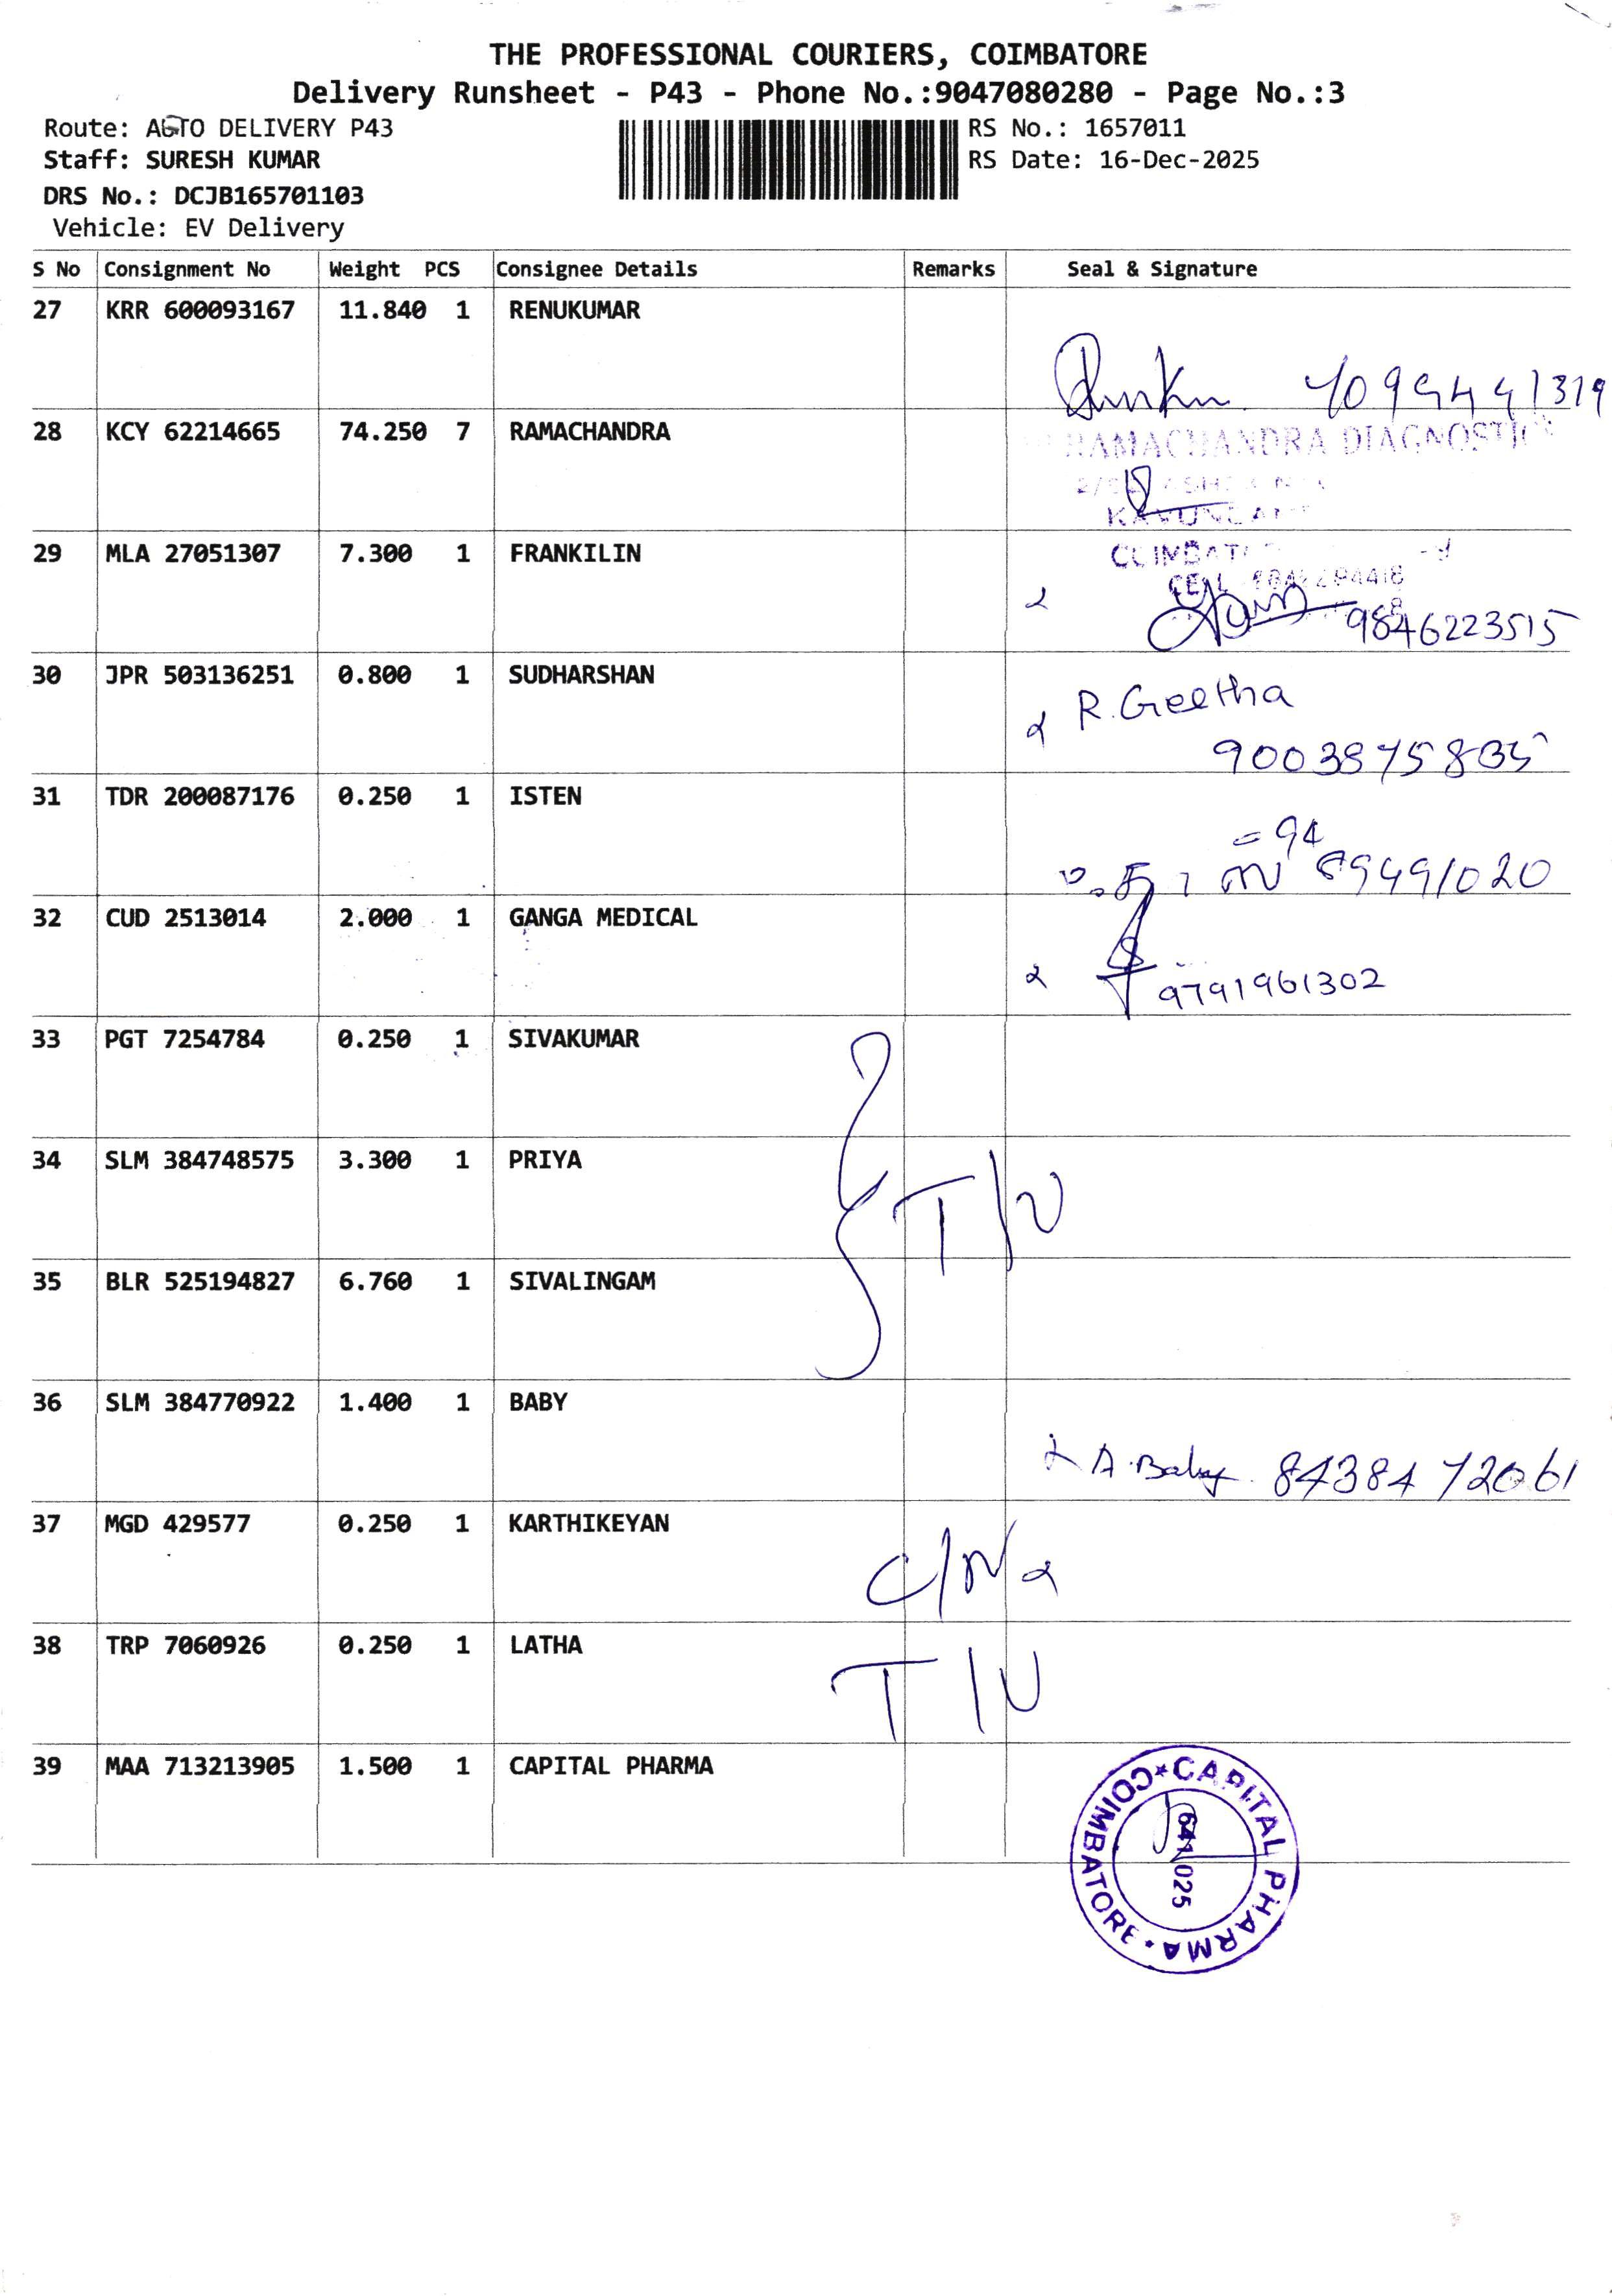 THE PROFESSIONAL COURIERS, COIMBATORE
Delivery Runsheet - P43 - Phone No.:9047080280 - Page No.:3
Route: AUTO DELIVERY P43
Staff: SURESH KUMAR
DRS No.: DCJB165701103
Vehicle: EV Delivery
RS No.: 1657011
RS Date: 16-Dec-2025
S No Consignment No Weight PCS Consignee Details Remarks Seal & Signature
27 KRR 600093167 11.840 1 RENUKUMAR
28 KCY 62214665 74.250 7 RAMACHANDRA
RAMACHANDRA DIAGNOSTIC
29 MLA 27051307 7.300 1 FRANKILIN
9846223515
30 JPR 503136251 0.800 1 SUDHARSHAN
R. Geetha
9003875835
31 TDR 200087176 0.250 1 ISTEN
32 CUD 2513014 2.000 1 GANGA MEDICAL
9791961302
33 PGT 7254784 0.250 1 SIVAKUMAR
34 SLM 384748575 3.300 1 PRIYA
T/U
35 BLR 525194827 6.760 1 SIVALINGAM
36 SLM 384770922 1.400 1 BABY
A. Baby 8438472061
37 MGD 429577 0.250 1 KARTHIKEYAN
C/N
38 TRP 7060926 0.250 1 LATHA
T/U
39 MAA 713213905 1.500 1 CAPITAL PHARMA
CAPITAL PHARMA
COIMBATORE
641 025